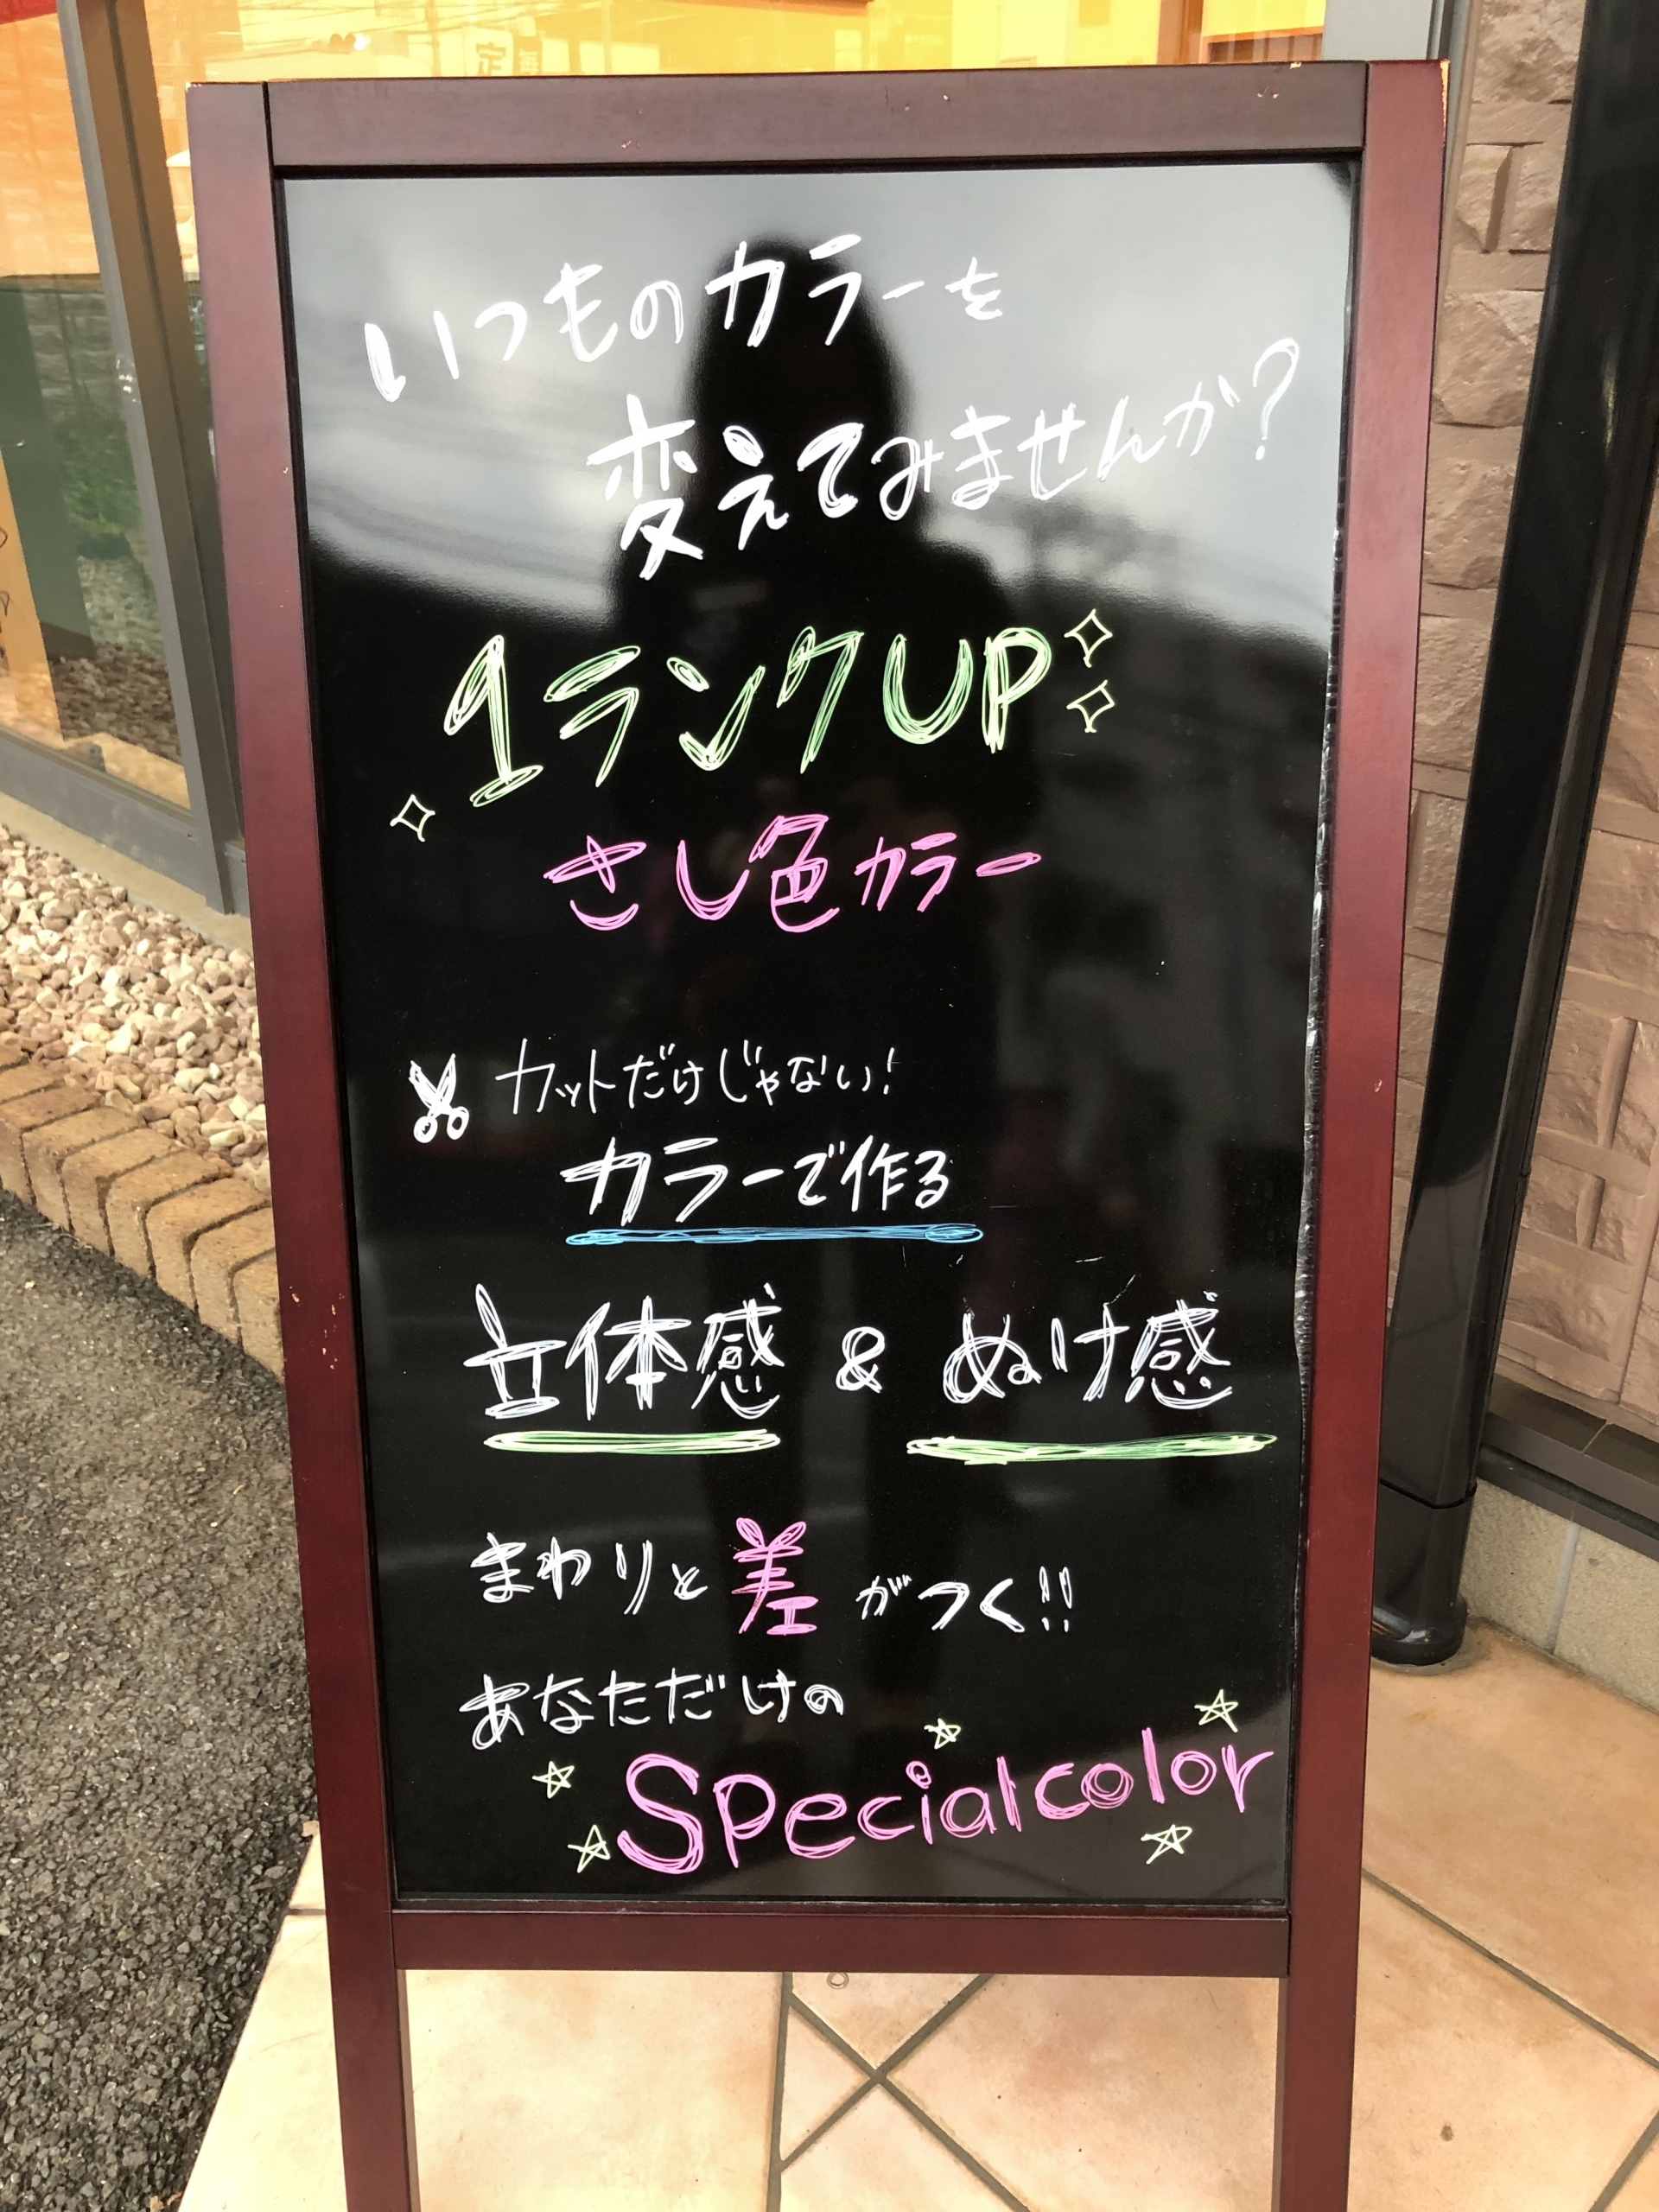 いつものカラーを
変えてみませんか?
1ランクUP
さし色カラー
カットだけじゃない!
カラーで作る
立体感 & ぬけ感
まわりと差がつく!!
あなただけの
Specialcolor